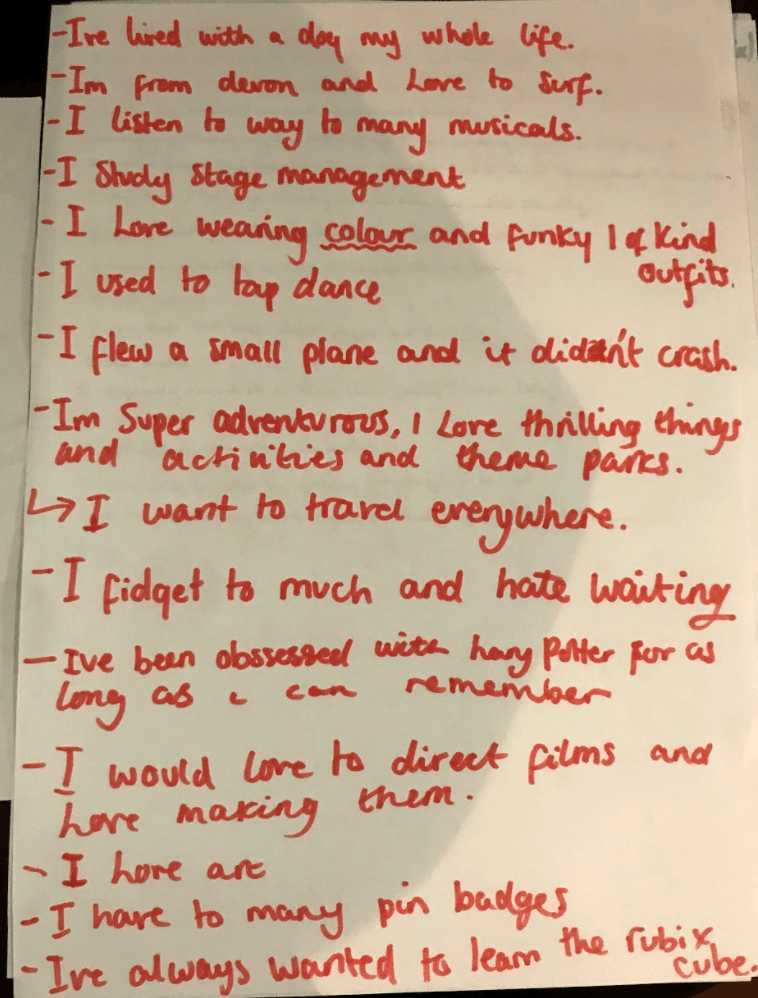 -Ive lived with a dog my whole life.
-Im from devon and Love to Surf.
-I listen to way to many musicals.
-I Study Stage management
-I Love wearing colour and funky 1 of kind
outfits.
-I used to tap dance
-I flew a small plane and it didn't crash.
-Im Super adventurous, I Love thrilling things
and activities and theme parks.
↳I want to travel everywhere.
-I fidget to much and hate waiting
-Ive been obssessed with harry Potter For as
long as i can remember
-I would love to direct films and
love making them.
-I love art
-I have to many pin badges
-Ive always wanted to learn the rubix
cube.